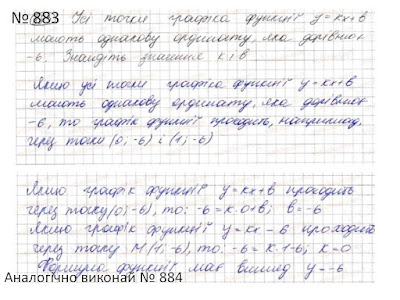 № 883 Усі точки графіка функції y=kx+b
мають однакову ординату, яка дорівнює
-6. Знайдіть значення k і b
Якщо усі точки графіка функції y=kx+b
мають однакову ординату, яка дорівнює
-6, то графік функції проходить, наприклад,
через точки (0; -6) і (1; -6)
Якщо графік функції y=kx+b проходить
через точку (0; -6), то: -6=k·0+b; b=-6
Якщо графік функції y=kx-6 проходить
через точку M(1; -6), то: -6=k·1-6; k=0
Формула функції має вигляд y=-6
Аналогічно виконай № 884